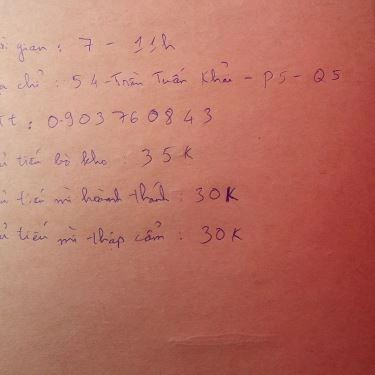 i gian : 7 - 11h
a chỉ : 54 - Trần Tuấn Khải - P5 - Q5
Tt : 0903760843
ủ tiếu bò kho : 35K
ủ tiếu mì hoành thánh : 30K
ủ tiếu mì thập cẩm : 30K